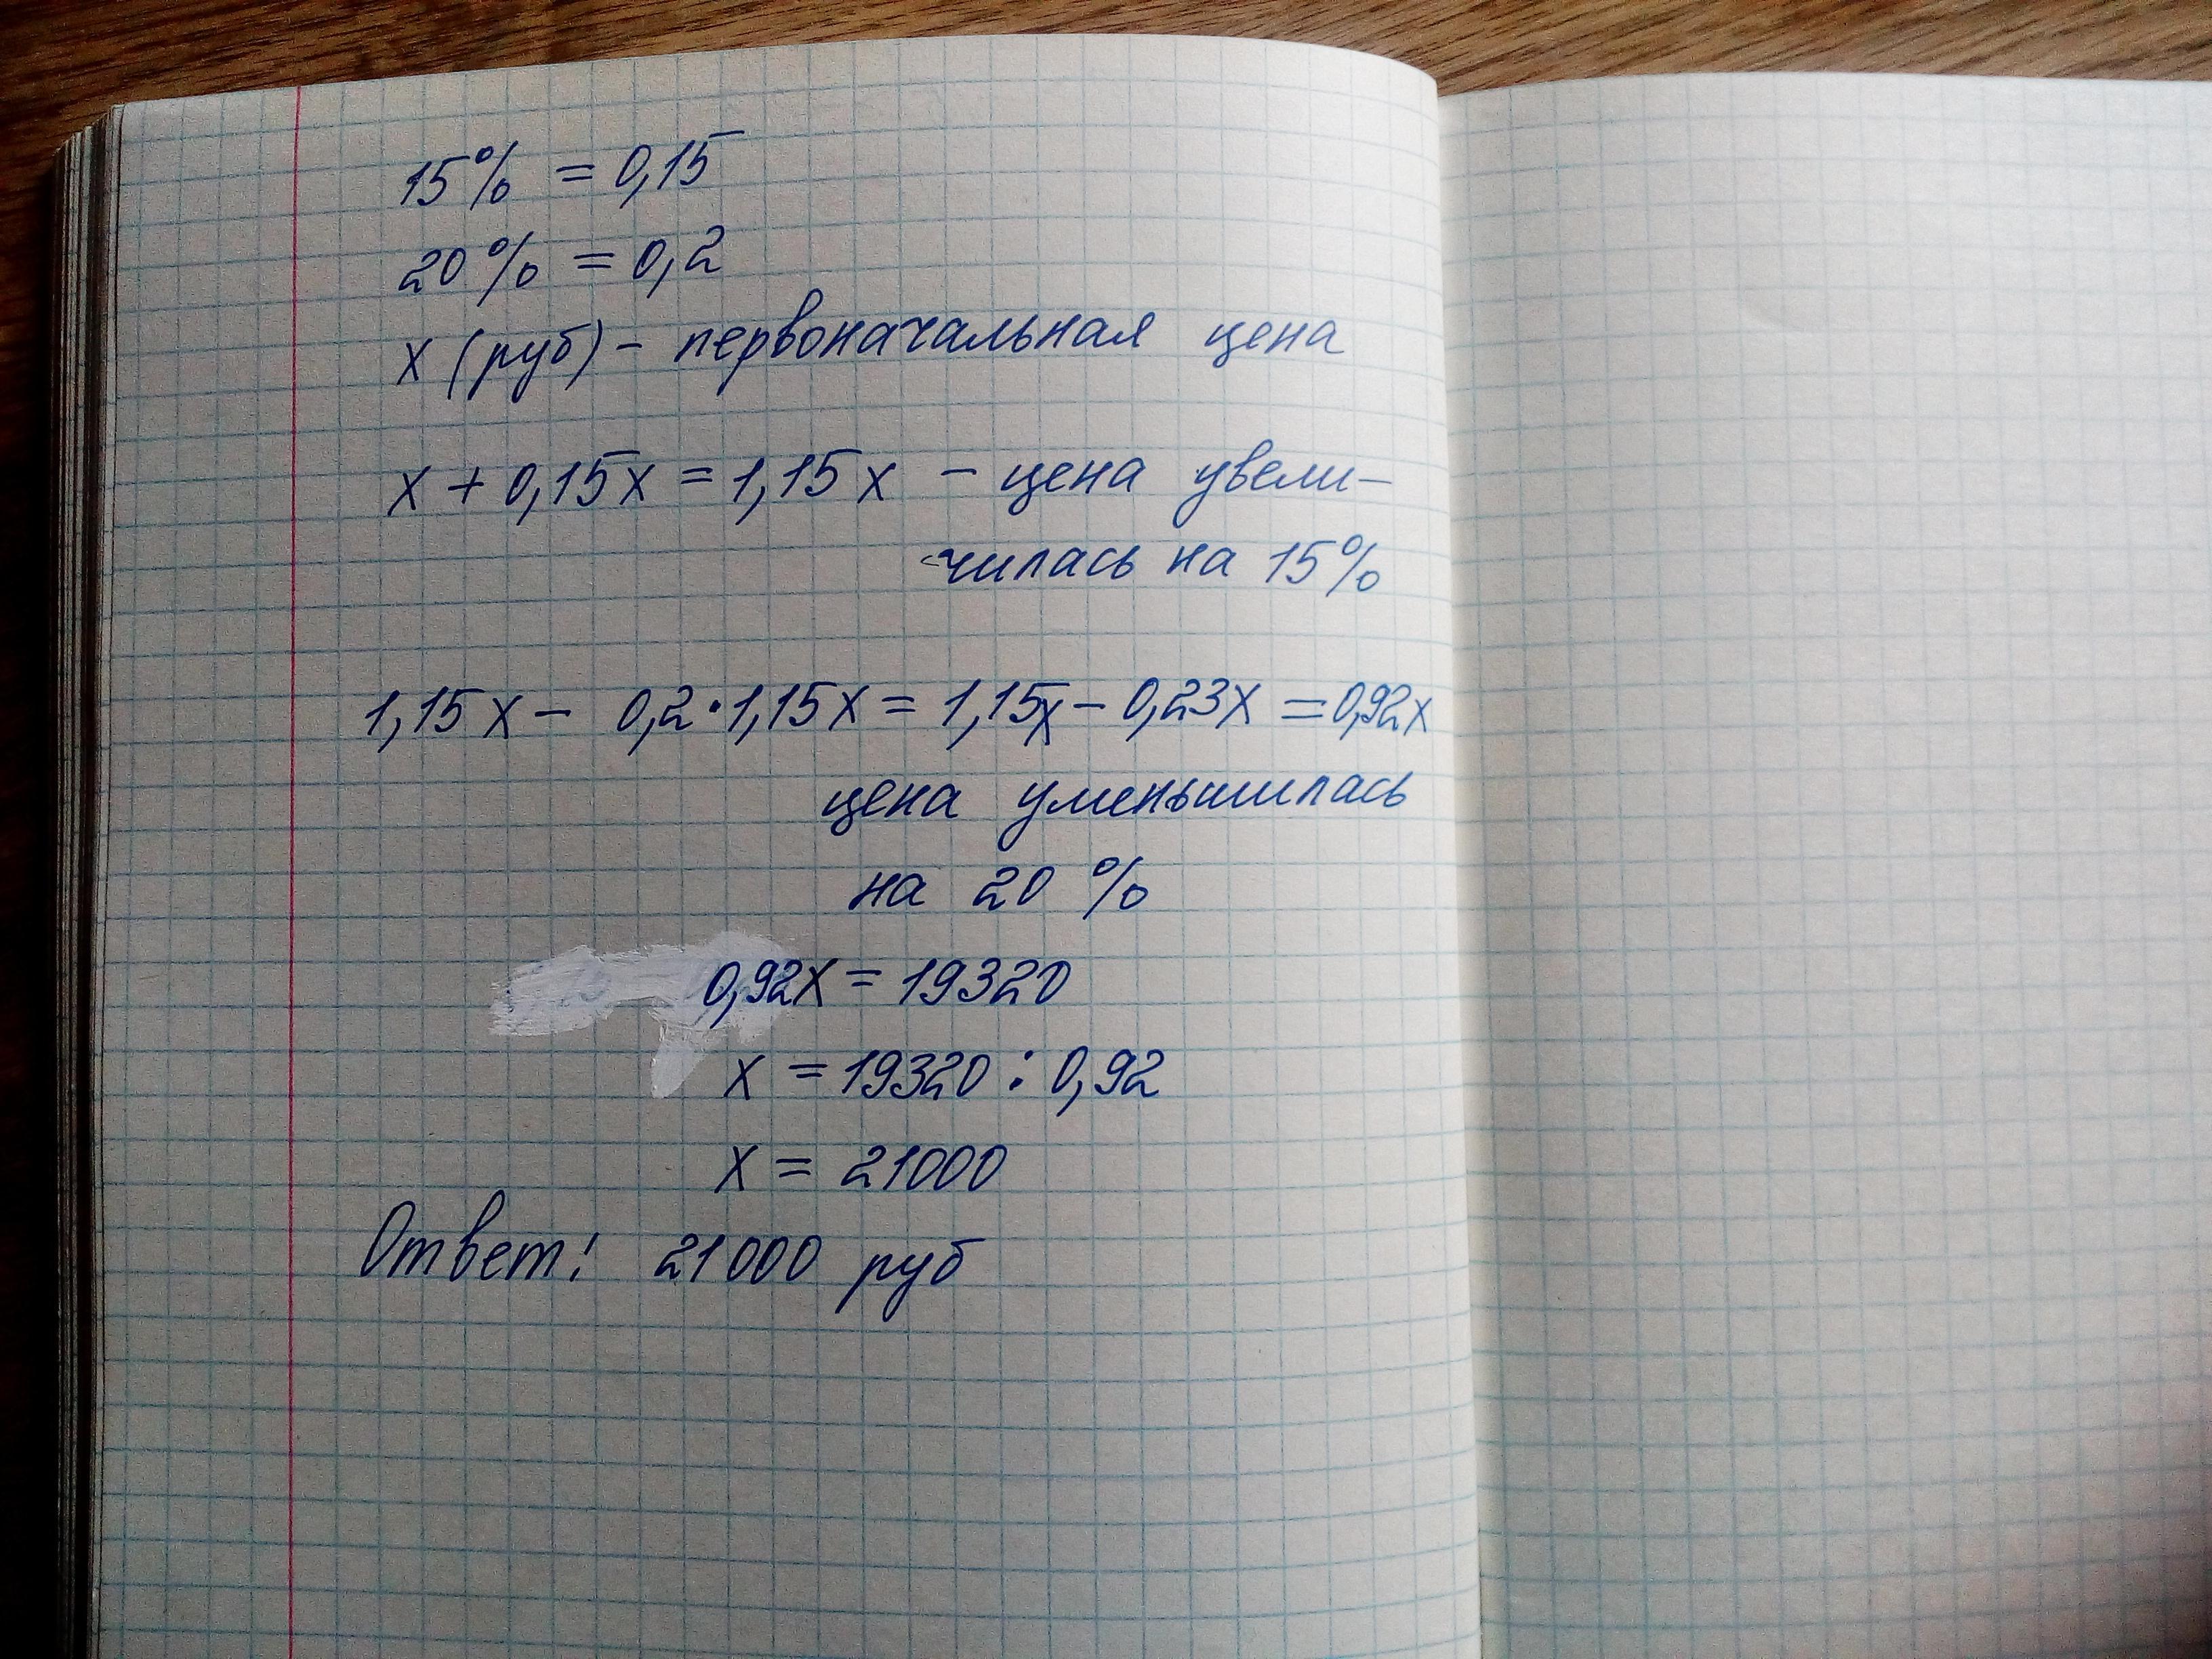 15% = 0,15
20% = 0,2
х (руб) - первоначальная цена
х + 0,15х = 1,15х - цена увели-
чилась на 15%
1,15х - 0,2·1,15х = 1,15х - 0,23х = 0,92х
цена уменьшилась
на 20 %
0,92х = 19320
х = 19320 : 0,92
х = 21000
Ответ: 21000 руб